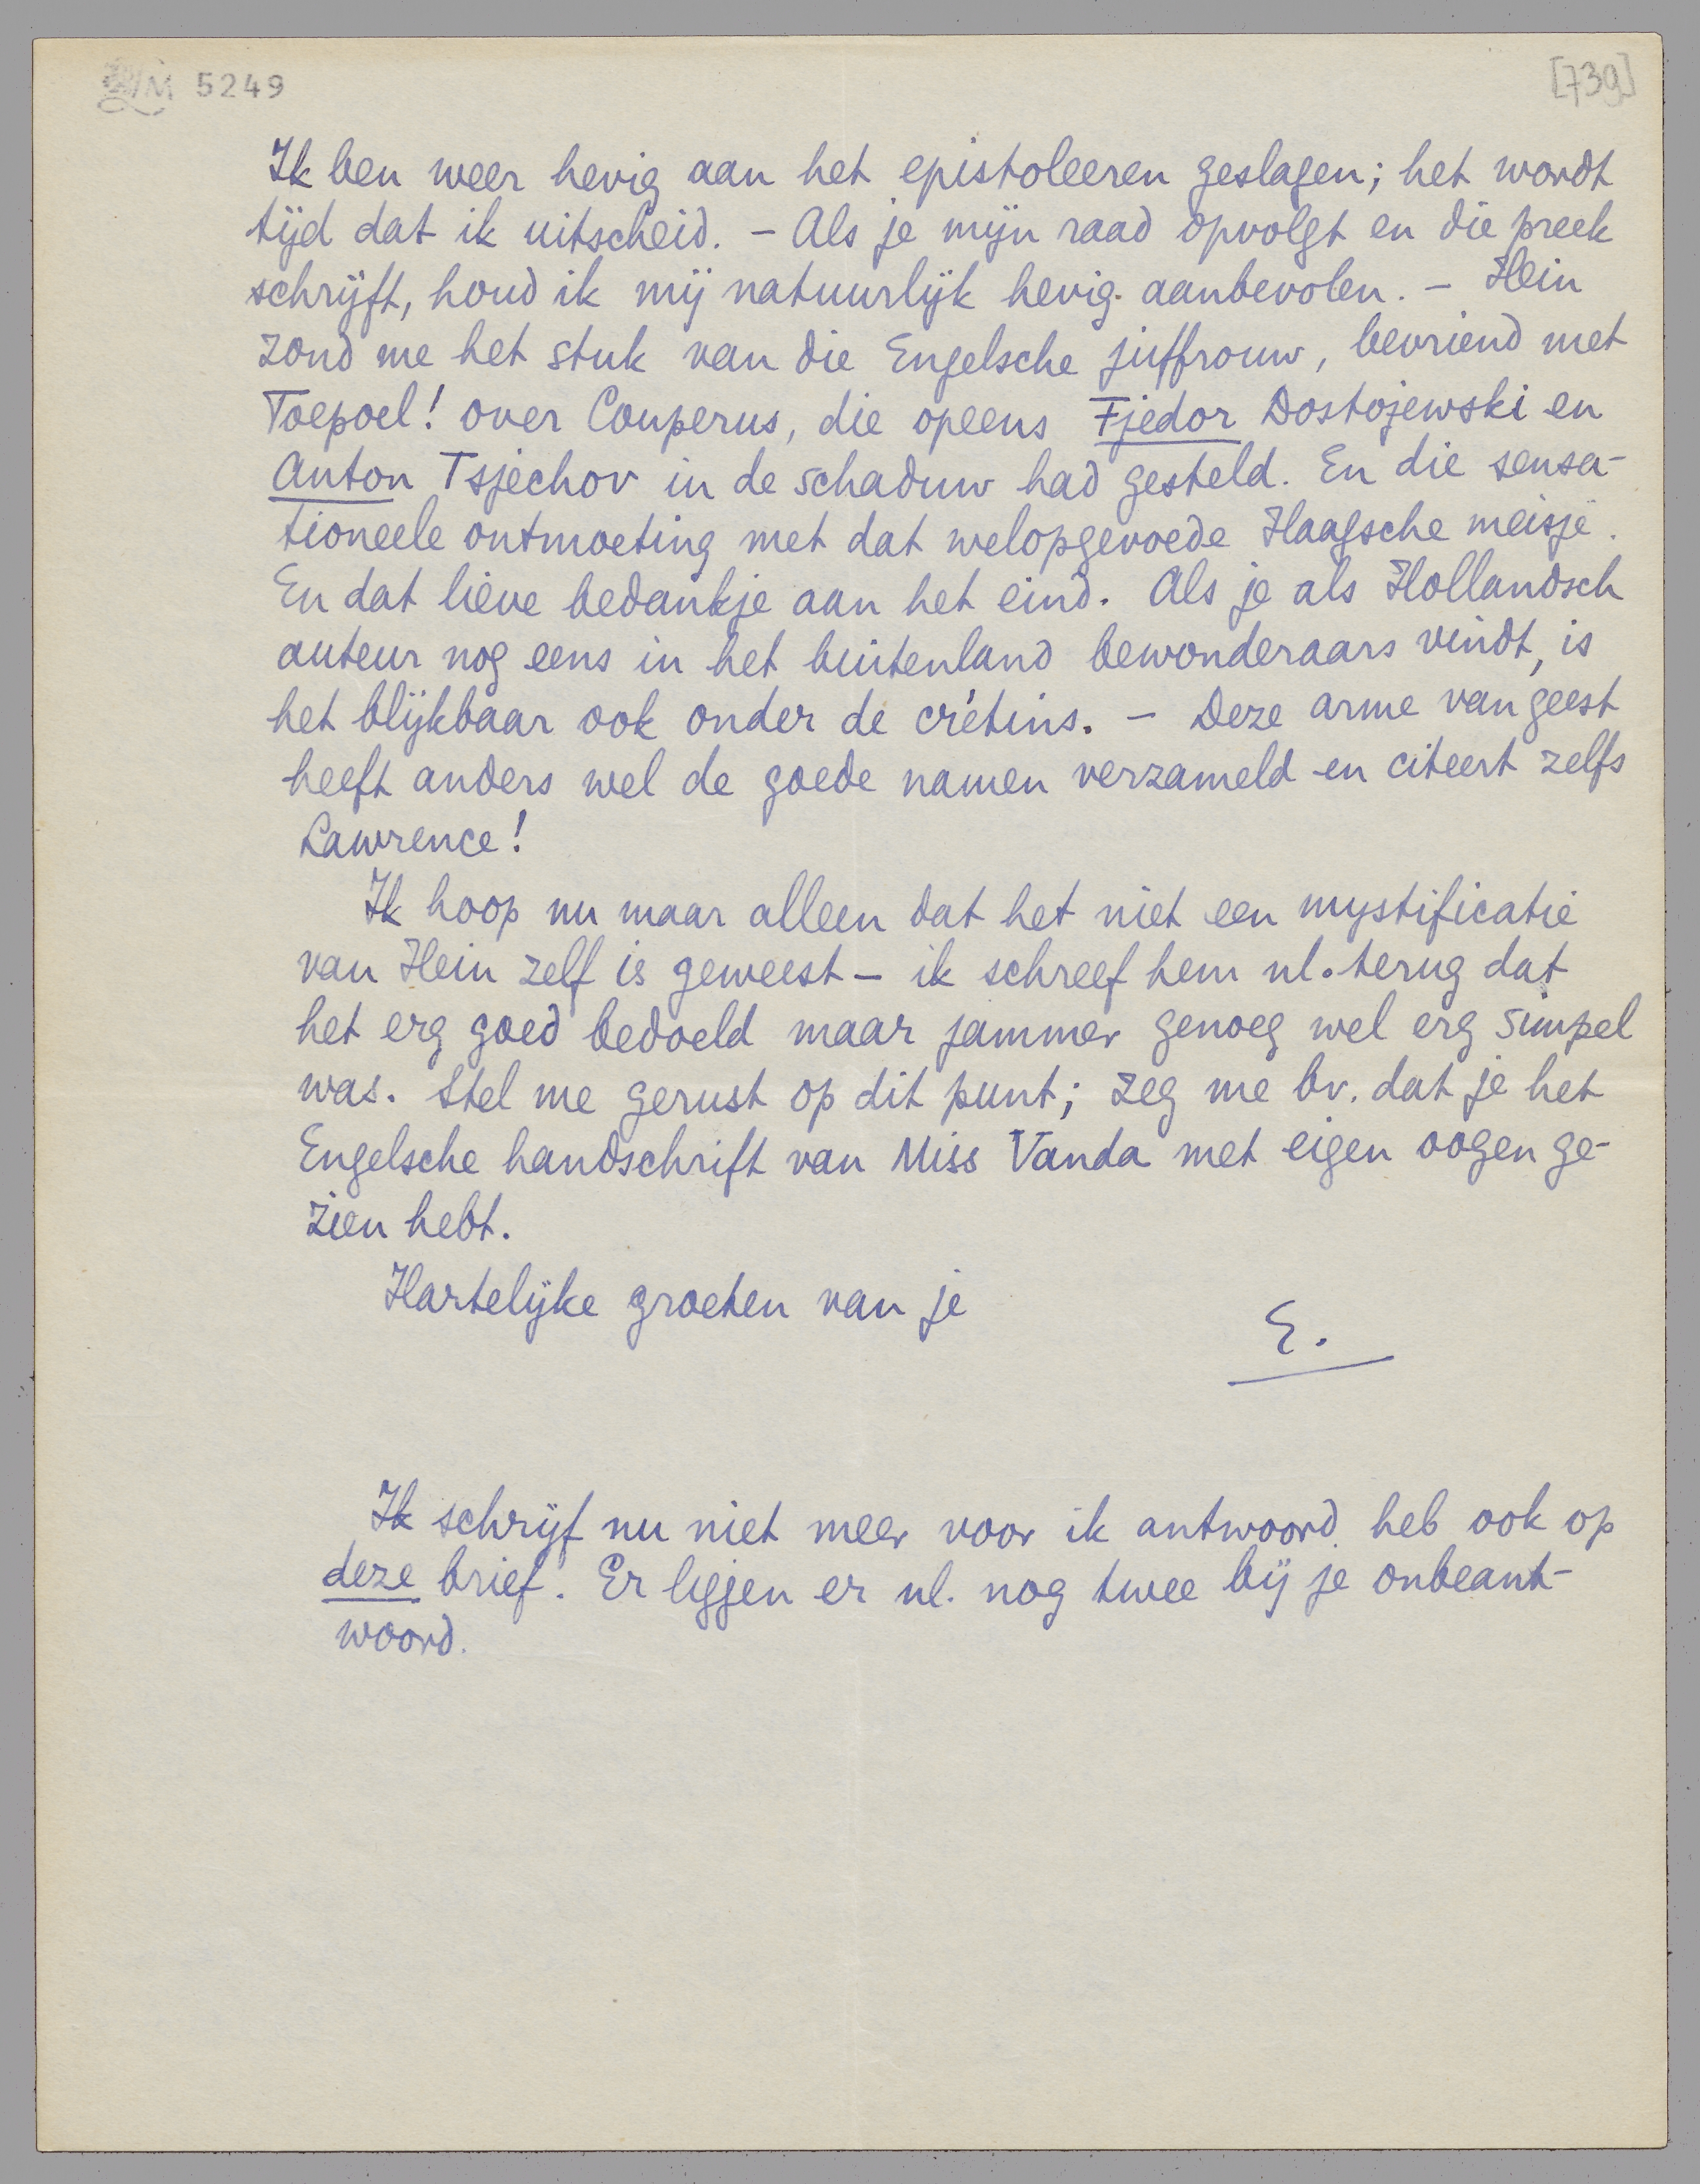 5249
[739]
Ik ben weer hevig aan het epistoleeren geslagen; het wordt
tijd dat ik uitscheid. – Als je mijn raad opvolgt en die preek
schrijft, houd ik mij natuurlijk hevig aanbevolen. – Hein
zond me het stuk van die Engelsche juffrouw, bevriend met
Toepoel! over Couperus, die opeens Fjedor Dostojewski en
Anton Tsjechov in de schaduw had gesteld. En die sensa-
tioneele ontmoeting met dat welopgevoede Haagsche meisje.
En dat lieve bedankje aan het eind. Als je als Hollandsch
auteur nog eens in het buitenland bewonderaars vindt, is
het blijkbaar ook onder de crétins. – Deze arme van geest
heeft anders wel de goede namen verzameld en citeert zelfs
Lawrence!
Ik hoop nu maar alleen dat het niet een mystificatie
van Hein zelf is geweest – ik schreef hem nl. terug dat
het erg goed bedoeld maar jammer genoeg wel erg simpel
was. Stel me gerust op dit punt; zeg me bv. dat je het
Engelsche handschrift van Miss Vanda met eigen oogen ge-
zien hebt.
Hartelijke groeten van je
E.
Ik schrijf nu niet meer voor ik antwoord heb ook op
deze brief. Er liggen er nl. nog twee bij je onbeant-
woord.